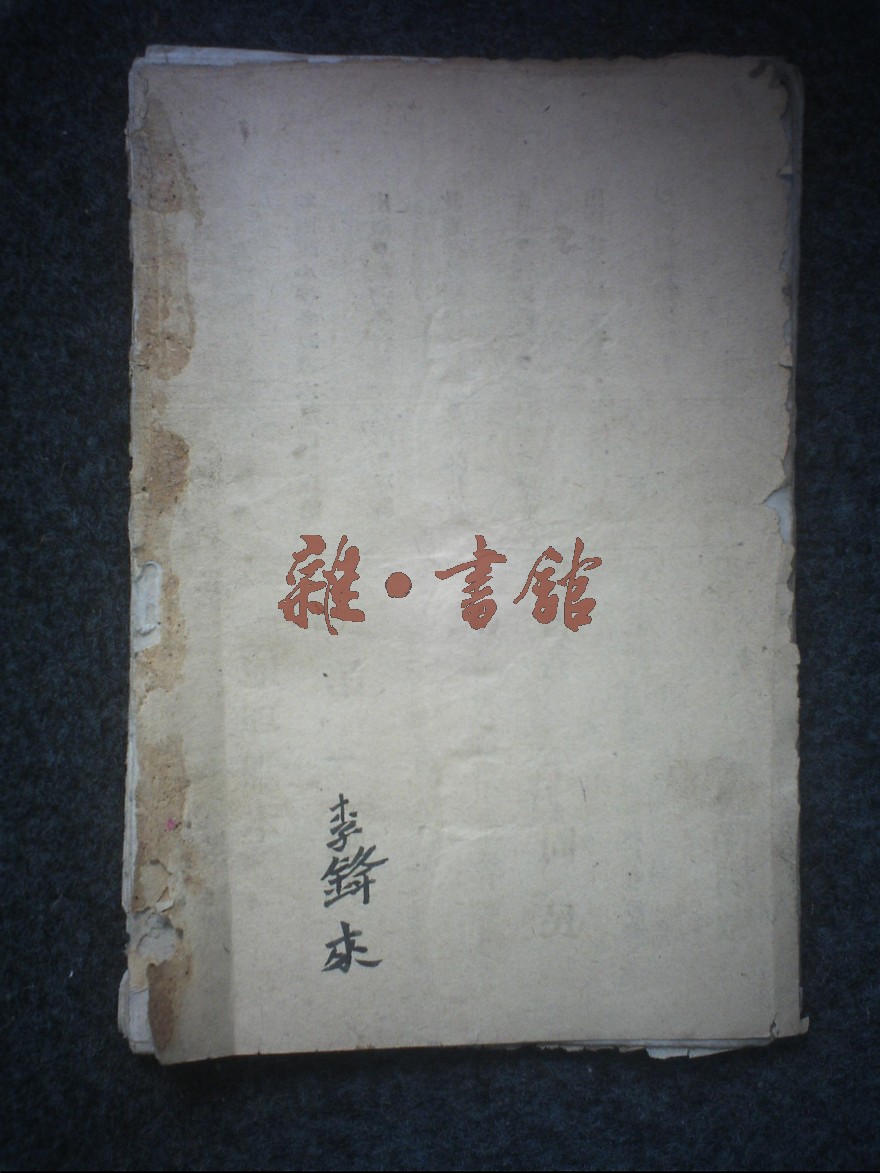 雜·書館
李鋒來